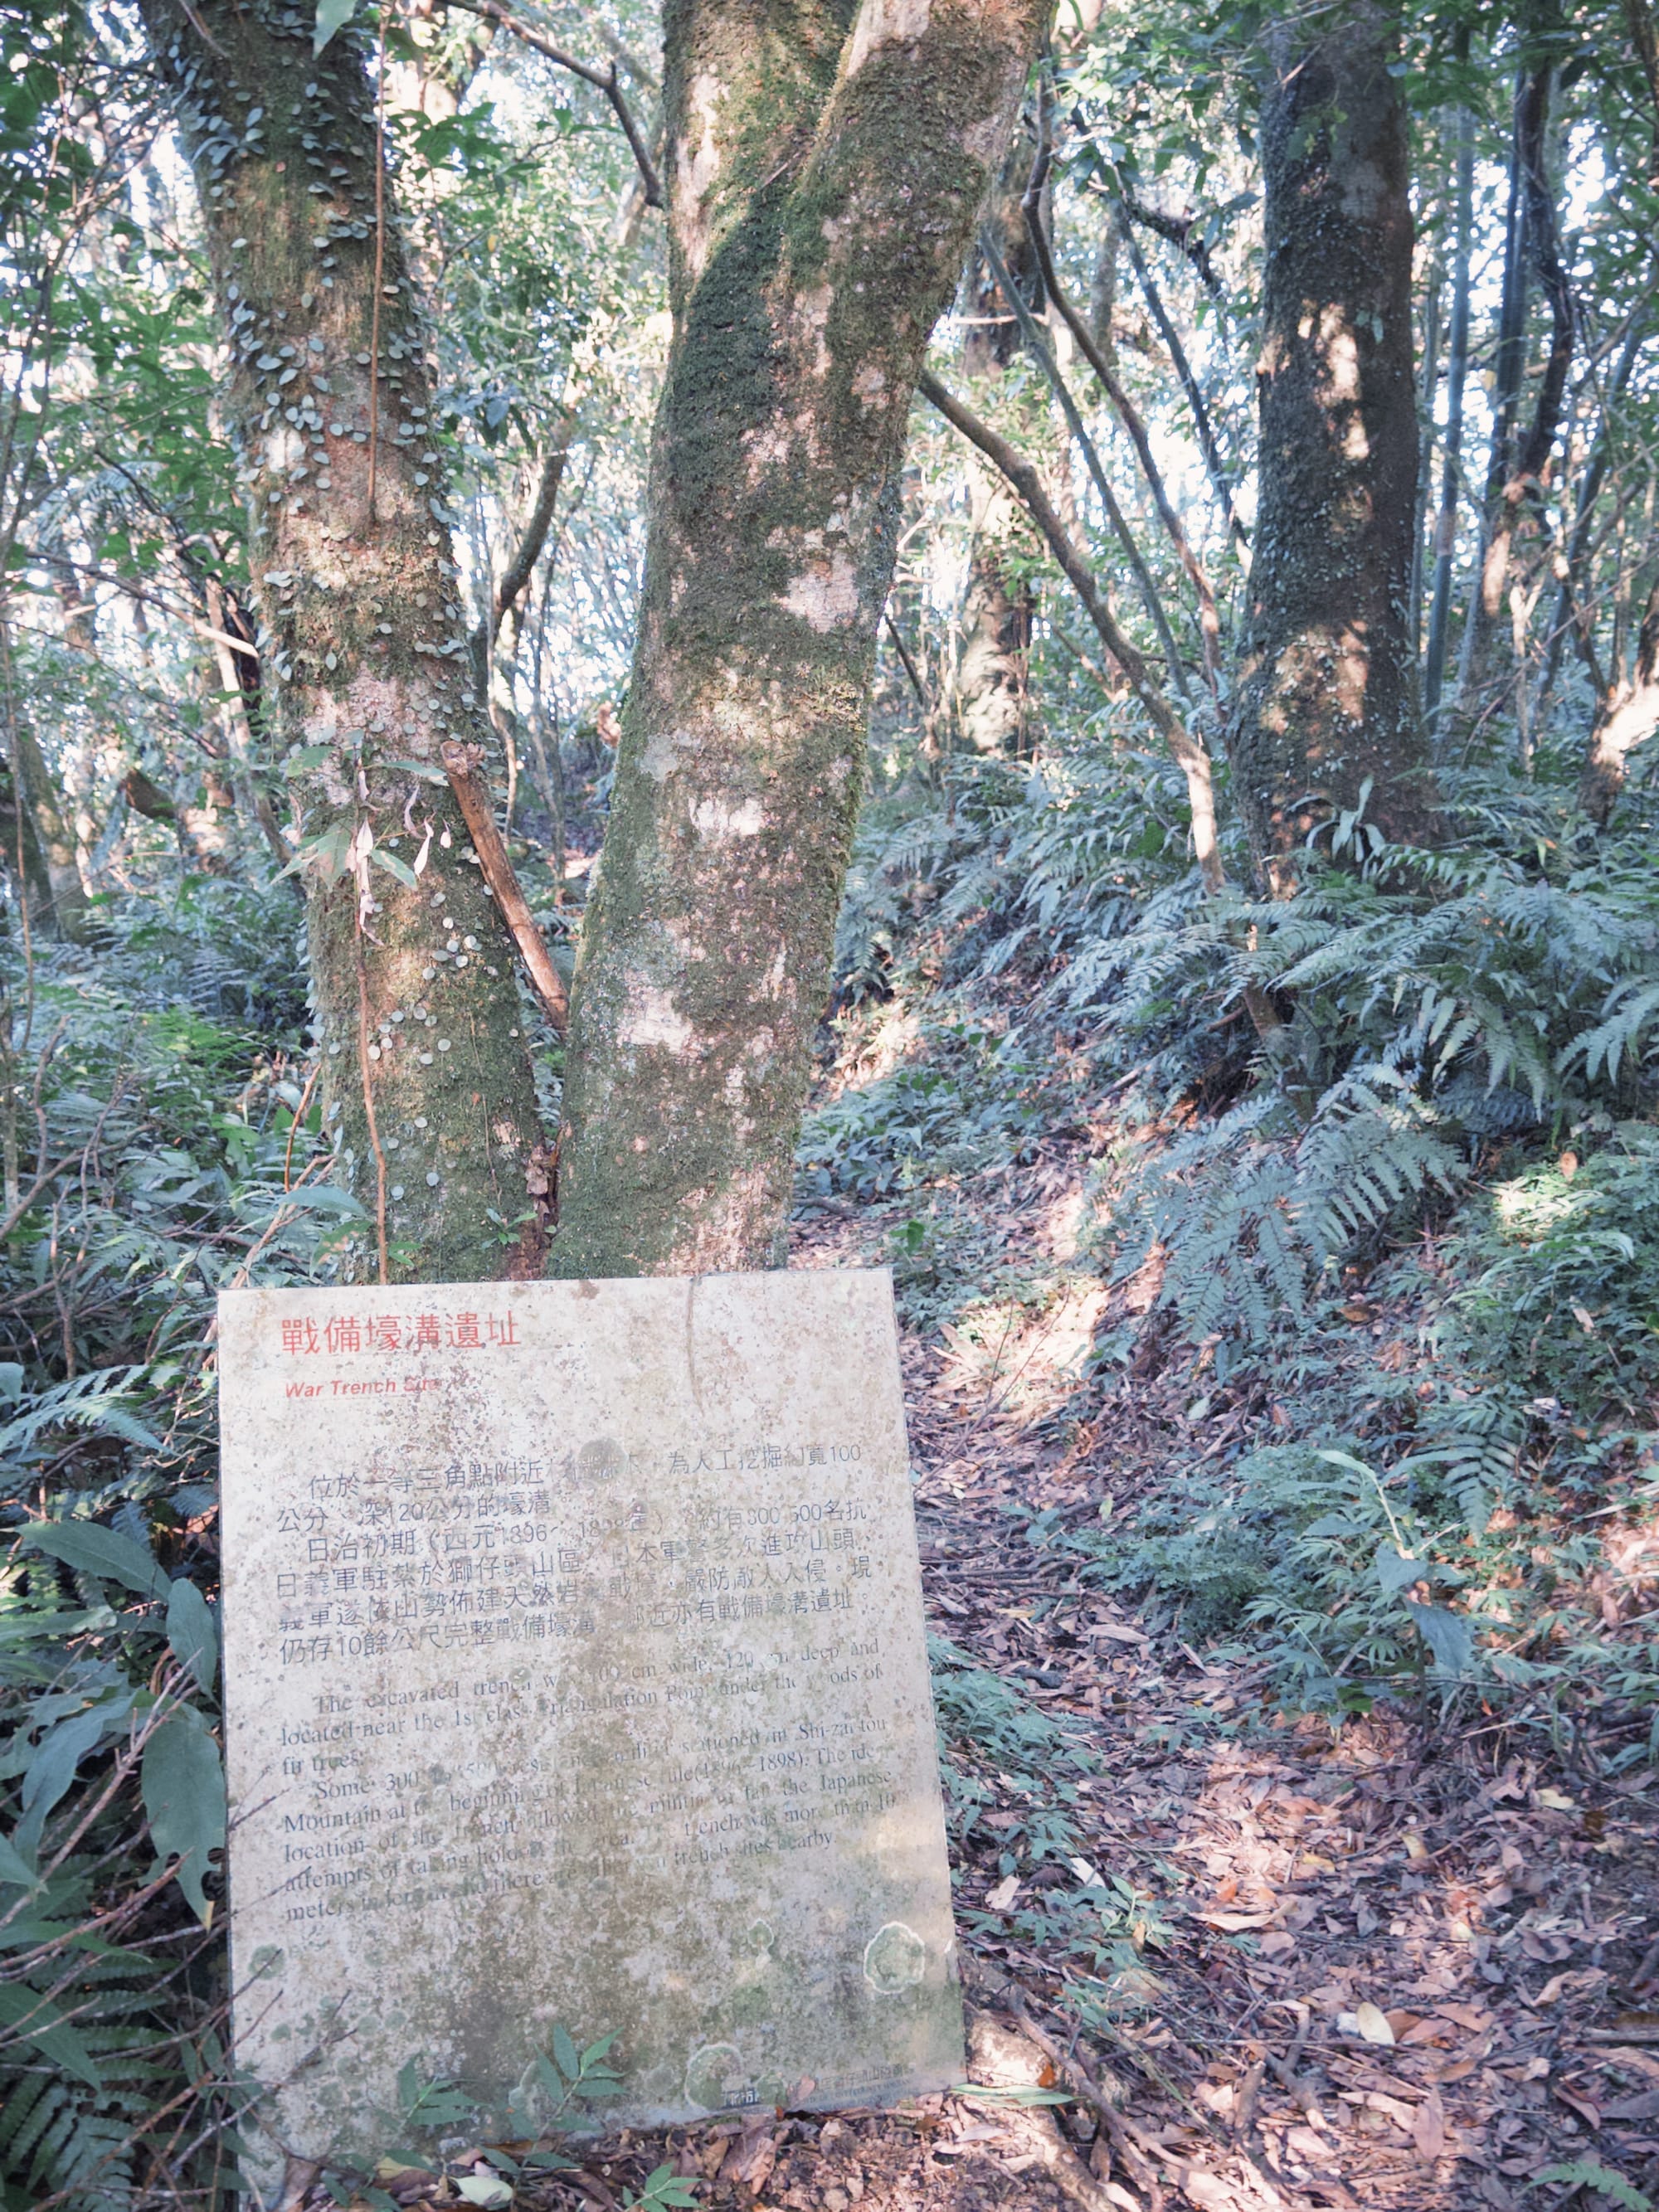 戰備壕溝遺址
War Trench Site
位於一等三角點附近 為人工挖掘約寬100
公分、深120公分的壕溝
日治初期（西元1896～1898年），約有300 500名抗
日義軍駐紮於獅仔頭山區，日本軍警多次進攻山頭，
義軍遂依山勢佈建天然岩 戰 ，嚴防敵人入侵。現
仍存10餘公尺完整戰備壕溝 鄰近亦有戰備壕溝遺址。
The excavated trench 100 cm wide, 120 cm deep and
located near the 1st class Triangulation Point under the woods of
fir trees.
Some 300 500 stationed in Shi-zai-tou
Mountain at the beginning of Japanese rule(1896~1898). The
location of the trench allowed the the Japanese
attempts of taking hold of the area. trench was more than 10
meters in length and there are trench sites nearby